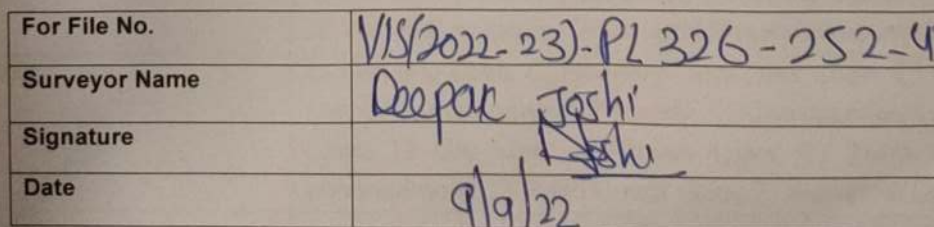 For File No. VIS(2022-23)-PL326-252-4
Surveyor Name Deepak Joshi
Signature Joshi
Date 9/9/22